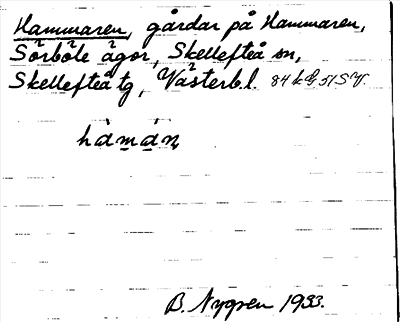 Hammaren, gårdar på Hammaren,
Sörböle ägor, Skellefteå sn,
Skellefteå tg, Västerb.l.
hàmán
B. Nygren 1933.